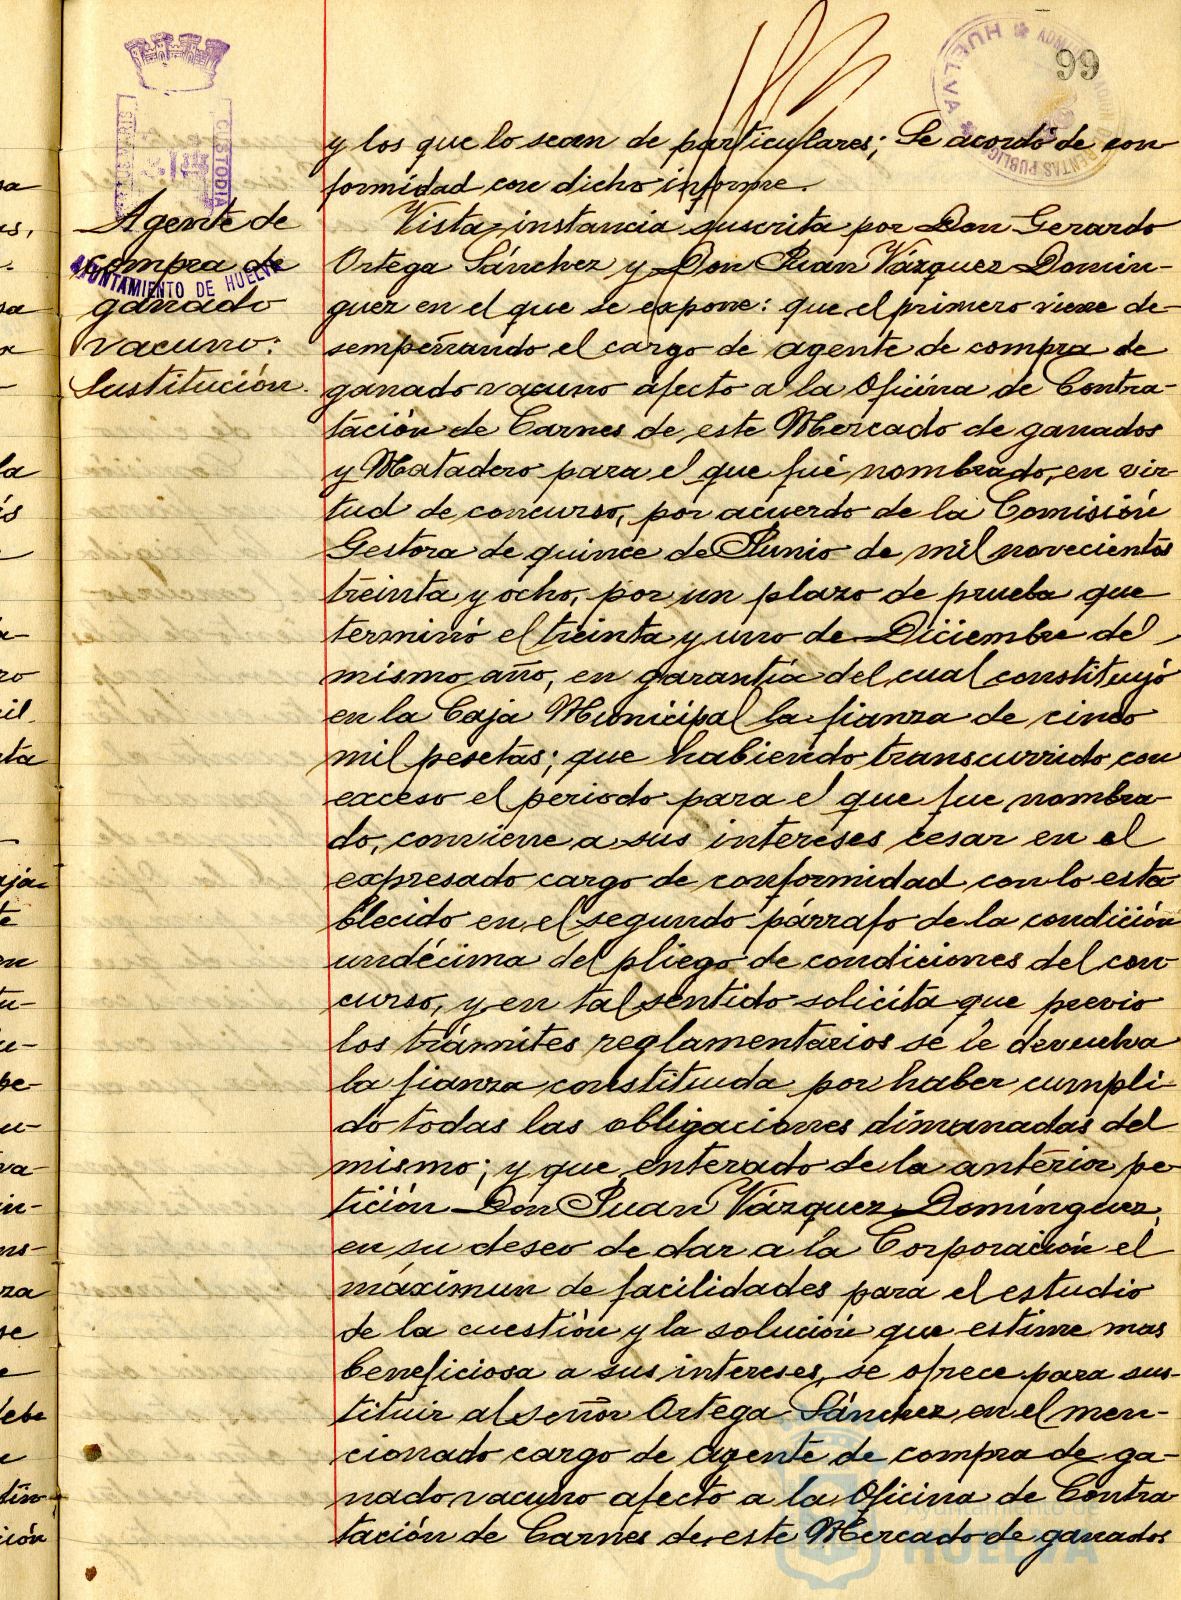 99
y los que lo sean de particulares; Se acordó de con
formidad con dicho informe.
Agente de
compra de
ganado
vacuno:
Sustitución.
CUSTODIA
AYUNTAMIENTO DE HUELVA
HUELVA
Vista instancia suscrita por Don Gerardo
Ortega Sánchez y Don Juan Vázquez Domin-
guez en el que se expone: que el primero viene de-
sempeñando el cargo de agente de compra de
ganado vacuno afecto a la Oficina de Contra-
tación de Carnes de este Mercado de ganados
y Matadero para el que fué nombrado, en vir-
tud de concurso, por acuerdo de la Comisión
Gestora de quince de Junio de mil novecientos
treinta y ocho, por un plazo de prueba que
terminó el treinta y uno de Diciembre del
mismo año, en garantía del cual constituyó
en la Caja Municipal la fianza de cinco
mil pesetas; que habiendo transcurrido con
exceso el periodo para el que fue nombra-
do, conviene a sus intereses cesar en el
expresado cargo de conformidad con lo esta
blecido en el segundo párrafo de la condición
undécima del pliego de condiciones del con
curso, y en tal sentido solicita que previo
los trámites reglamentarios se le devuelva
la fianza constituida por haber cumpli-
do todas las obligaciones dimanadas del
mismo; y que enterado de la anterior pe
tición Don Juan Vázquez Domínguez,
en su deseo de dar a la Corporación el
máximun de facilidades para el estudio
de la cuestión y la solución que estime mas
beneficiosa a sus intereses, se ofrece para sus-
tituir al señor Ortega Sánchez en el men-
cionado cargo de agente de compra de ga-
nado vacuno afecto a la Oficina de Contra
tación de Carnes de este Mercado de ganados
Ayuntamiento de
HUELVA